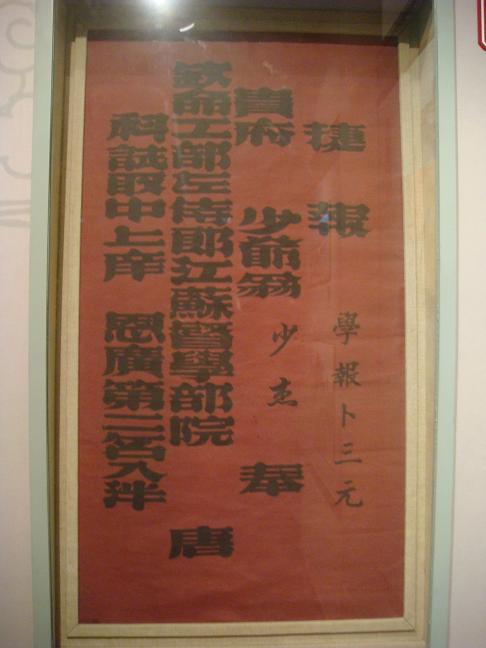 捷報　學報卜三元
貴府　少爺翁　少杰　奉
欽命工部左侍郎江蘇督學部院　唐
科試取中上庠　恩廣第二名入泮